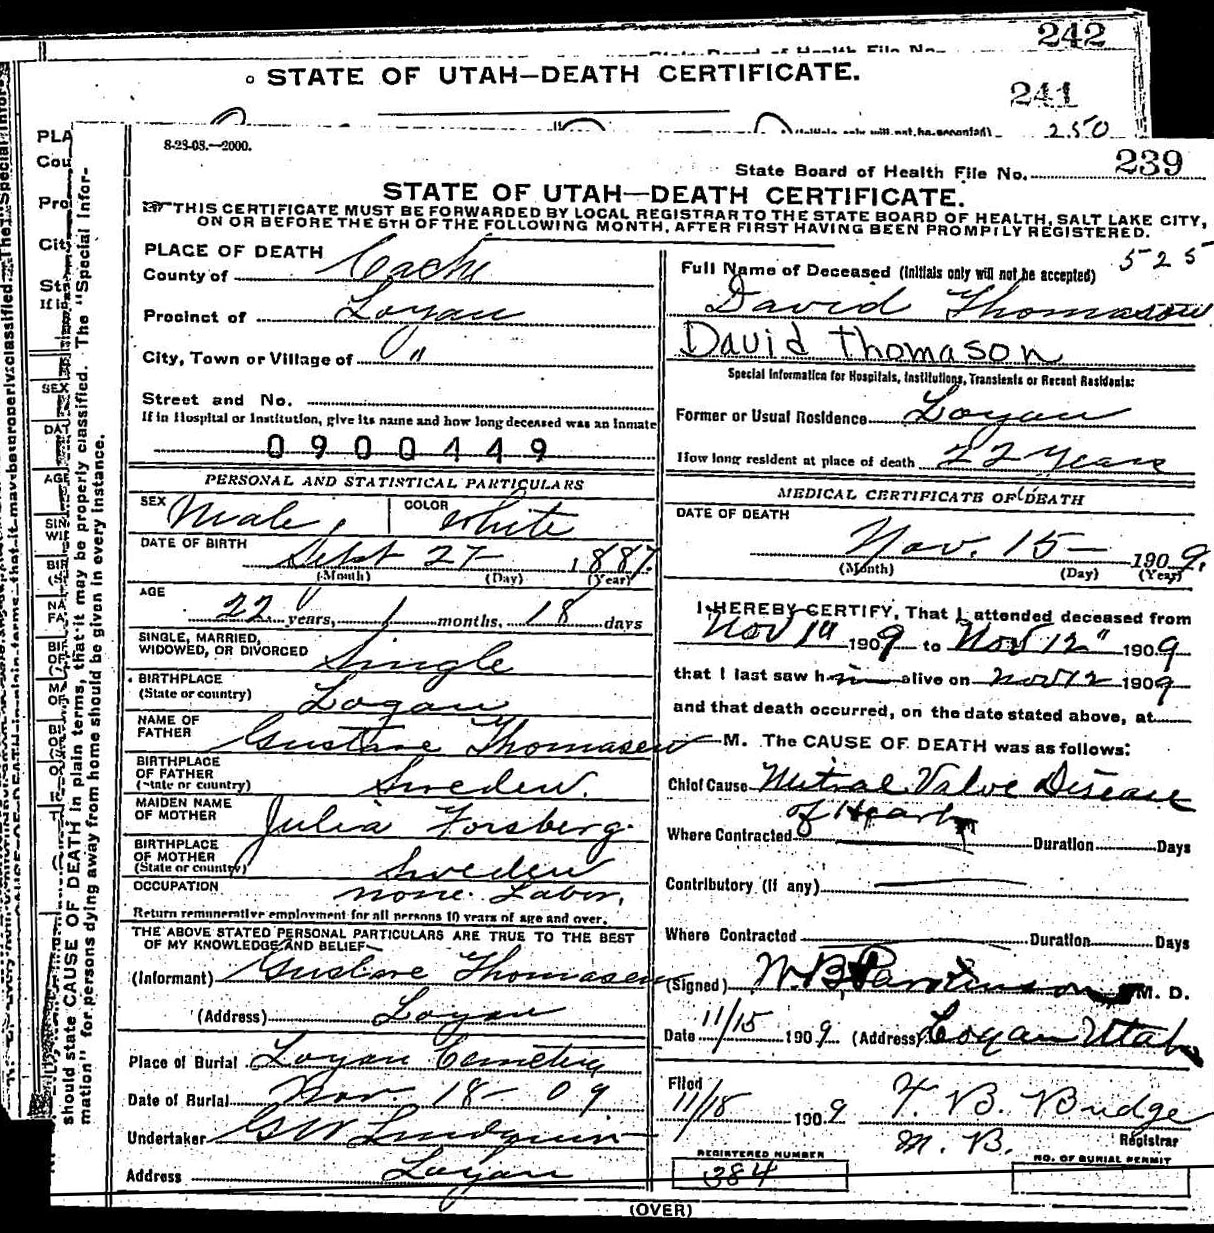 242
State Board of Health File No.
STATE OF UTAH—DEATH CERTIFICATE.
241
(Initials only will not be accepted)
250
PLA
Cou
Pro
City
St
If in
SEX
DAT
AGE
SIN
WIF
NA
FA
should state CAUSE OF DEATH in plain terms, that it may be properly classified. The "Special Infor-
mation" for persons dying away from home should be given in every instance.
8-23-08.—2000.
State Board of Health File No. 239
STATE OF UTAH—DEATH CERTIFICATE.
THIS CERTIFICATE MUST BE FORWARDED BY LOCAL REGISTRAR TO THE STATE BOARD OF HEALTH, SALT LAKE CITY,
ON OR BEFORE THE 5TH OF THE FOLLOWING MONTH, AFTER FIRST HAVING BEEN PROMPTLY REGISTERED.
PLACE OF DEATH
County of Cache
Precinct of Logan
City, Town or Village of "
Street and No.
If in Hospital or Institution, give its name and how long deceased was an Inmate
0900449
PERSONAL AND STATISTICAL PARTICULARS
SEX Male
COLOR White
DATE OF BIRTH Sept 27 1887
(Month) (Day) (Year)
AGE
22 years, 1 months, 18 days
SINGLE, MARRIED,
WIDOWED, OR DIVORCED Single
BIRTHPLACE
(State or country) Logan
NAME OF
FATHER Gustave Thomasen
BIRTHPLACE
OF FATHER
(State or country) Sweden.
MAIDEN NAME
OF MOTHER Julia Forsberg
BIRTHPLACE
OF MOTHER
(State or country) Sweden
OCCUPATION none. Labor.
Return remunerative employment for all persons 10 years of age and over.
THE ABOVE STATED PERSONAL PARTICULARS ARE TRUE TO THE BEST
OF MY KNOWLEDGE AND BELIEF
(Informant) Gustave Thomasen
(Address) Logan
Place of Burial Logan Cemetery
Date of Burial Nov. 18— 09
Undertaker G W Lindquist
Address Logan
525
Full Name of Deceased (Initials only will not be accepted)
David Thomason
David Thomason
Special Information for Hospitals, Institutions, Transients or Recent Residents:
Former or Usual Residence Logan
How long resident at place of death 22 Years
MEDICAL CERTIFICATE OF DEATH
DATE OF DEATH
Nov. 15— 1909.
(Month) (Day) (Year)
I HEREBY CERTIFY, That I attended deceased from
Nov 1" 1909 to Nov 12" 1909
that I last saw him alive on Nov 12 1909
and that death occurred, on the date stated above, at
M. The CAUSE OF DEATH was as follows:
Chief Cause Mitral Valve Disease
of Heart
Where Contracted Duration Days
Contributory (if any)
Where Contracted Duration Days
(Signed) W. B. Parkinson M. D.
Date 11/15 1909 (Address) Logan Utah
Filed
11/18 1909 F. B. Budge
M. B. Registrar
REGISTERED NUMBER
384
NO. OF BURIAL PERMIT
(OVER)